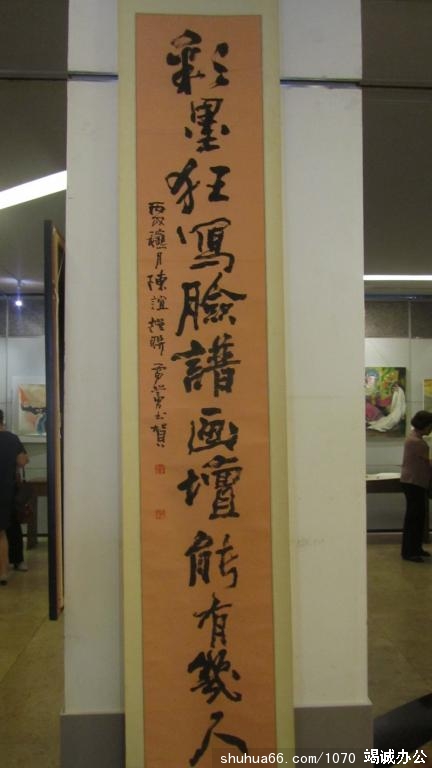 彩墨狂写臉譜画壇能有幾人
丙戌 月陳誼撰聯 書賀
shuhua66.com/1070 竭诚办公